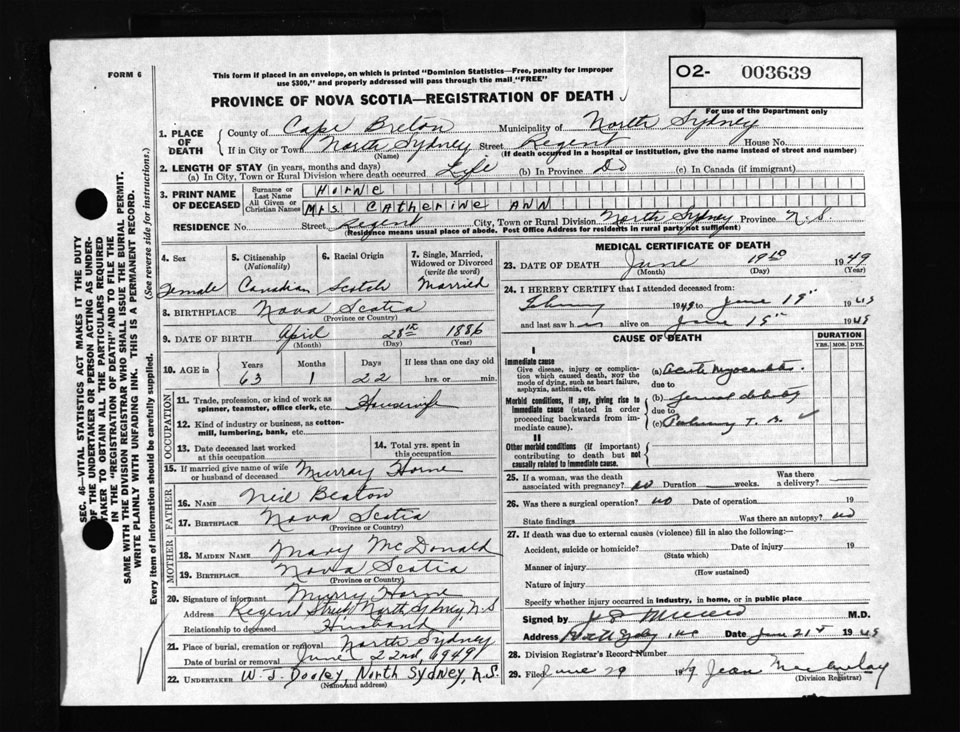 FORM 6
This form if placed in an envelope, on which is printed "Dominion Statistics—Free, penalty for improper
use $300," and properly addressed will pass through the mail "FREE"
O2- 003639
For use of the Department only
PROVINCE OF NOVA SCOTIA—REGISTRATION OF DEATH
1. PLACE OF DEATH
County of Cape Breton Municipality of North Sydney
If in City or Town North Sydney Street Regent House No.
(Name) (If death occurred in a hospital or institution, give the name instead of street and number)
2. LENGTH OF STAY (in years, months and days)
(a) In City, Town or Rural Division where death occurred Life (b) In Province Do (c) In Canada (if immigrant)
3. PRINT NAME OF DECEASED
Surname or Last Name Horne
All Given or Christian Names Mrs. Catherine Ann
RESIDENCE No. Street Regent City, Town or Rural Division North Sydney Province N.S.
(Residence means usual place of abode. Post Office Address for residents in rural parts not sufficient)
4. Sex Female
5. Citizenship (Nationality) Canadian
6. Racial Origin Scotch
7. Single, Married, Widowed or Divorced (write the word) Married
8. BIRTHPLACE Nova Scotia
(Province or Country)
9. DATE OF BIRTH April 28th 1886
(Month) (Day) (Year)
10. AGE in Years Months Days If less than one day old
63 1 22 hrs. or min.
OCCUPATION
11. Trade, profession, or kind of work as spinner, teamster, office clerk, etc. Housewife
12. Kind of industry or business, as cotton-mill, lumbering, bank, etc.
13. Date deceased last worked at this occupation
14. Total yrs. spent in this occupation
15. If married give name of wife or husband of deceased Murray Horne
FATHER
16. NAME Neil Beaton
17. BIRTHPLACE Nova Scotia
(Province or Country)
MOTHER
18. MAIDEN NAME Mary McDonald
19. BIRTHPLACE Nova Scotia
(Province or Country)
20. Signature of informant Murry Horne
Address Regent Street North Sydney, N.S
Relationship to deceased Husband
21. Place of burial, cremation or removal North Sydney
Date of burial or removal June 22nd, 1949
22. UNDERTAKER W. J. Dooley, North Sydney, N.S.
(Name and address)
MEDICAL CERTIFICATE OF DEATH
23. DATE OF DEATH June 19th 1949
(Month) (Day) (Year)
24. I HEREBY CERTIFY that I attended deceased from:
1949 to June 19th 1949
and last saw h alive on June 15th 1949
CAUSE OF DEATH
DURATION
YRS. MOS. DYS.
I
Immediate cause
Give disease, injury or complication which caused death, NOT the mode of dying, such as heart failure, asphyxia, asthenia, etc.
(a) Acute Myocarditis.
due to
Morbid conditions, if any, giving rise to immediate cause (stated in order proceeding backwards from immediate cause).
(b) debility
due to
(c) Pulmonary T. B.
II
Other morbid conditions (if important) contributing to death but not causally related to immediate cause.
25. If a woman, was the death associated with pregnancy? no Duration weeks. Was there a delivery?
26. Was there a surgical operation? no Date of operation 19
State findings Was there an autopsy? no
27. If death was due to external causes (violence) fill in also the following:
Accident, suicide or homicide? Date of injury 19
(State which)
Manner of injury
(How sustained)
Nature of injury
Specify whether injury occurred in industry, in home, or in public place
Signed by M.D.
Address Date June 21st 1949
28. Division Registrar's Record Number
29. Filed June 29 1949 Jean
(Division Registrar)
SEC. 46—VITAL STATISTICS ACT MAKES IT THE DUTY
OF THE UNDERTAKER OR PERSON ACTING AS UNDERTAKER TO OBTAIN ALL THE PARTICULARS REQUIRED
IN THE "REGISTRATION OF DEATH" AND TO FILE THE
SAME WITH THE DIVISION REGISTRAR WHO SHALL ISSUE THE BURIAL PERMIT.
WRITE PLAINLY WITH UNFADING INK. THIS IS A PERMANENT RECORD.
Every item of information should be carefully supplied. (See reverse side for instructions.)